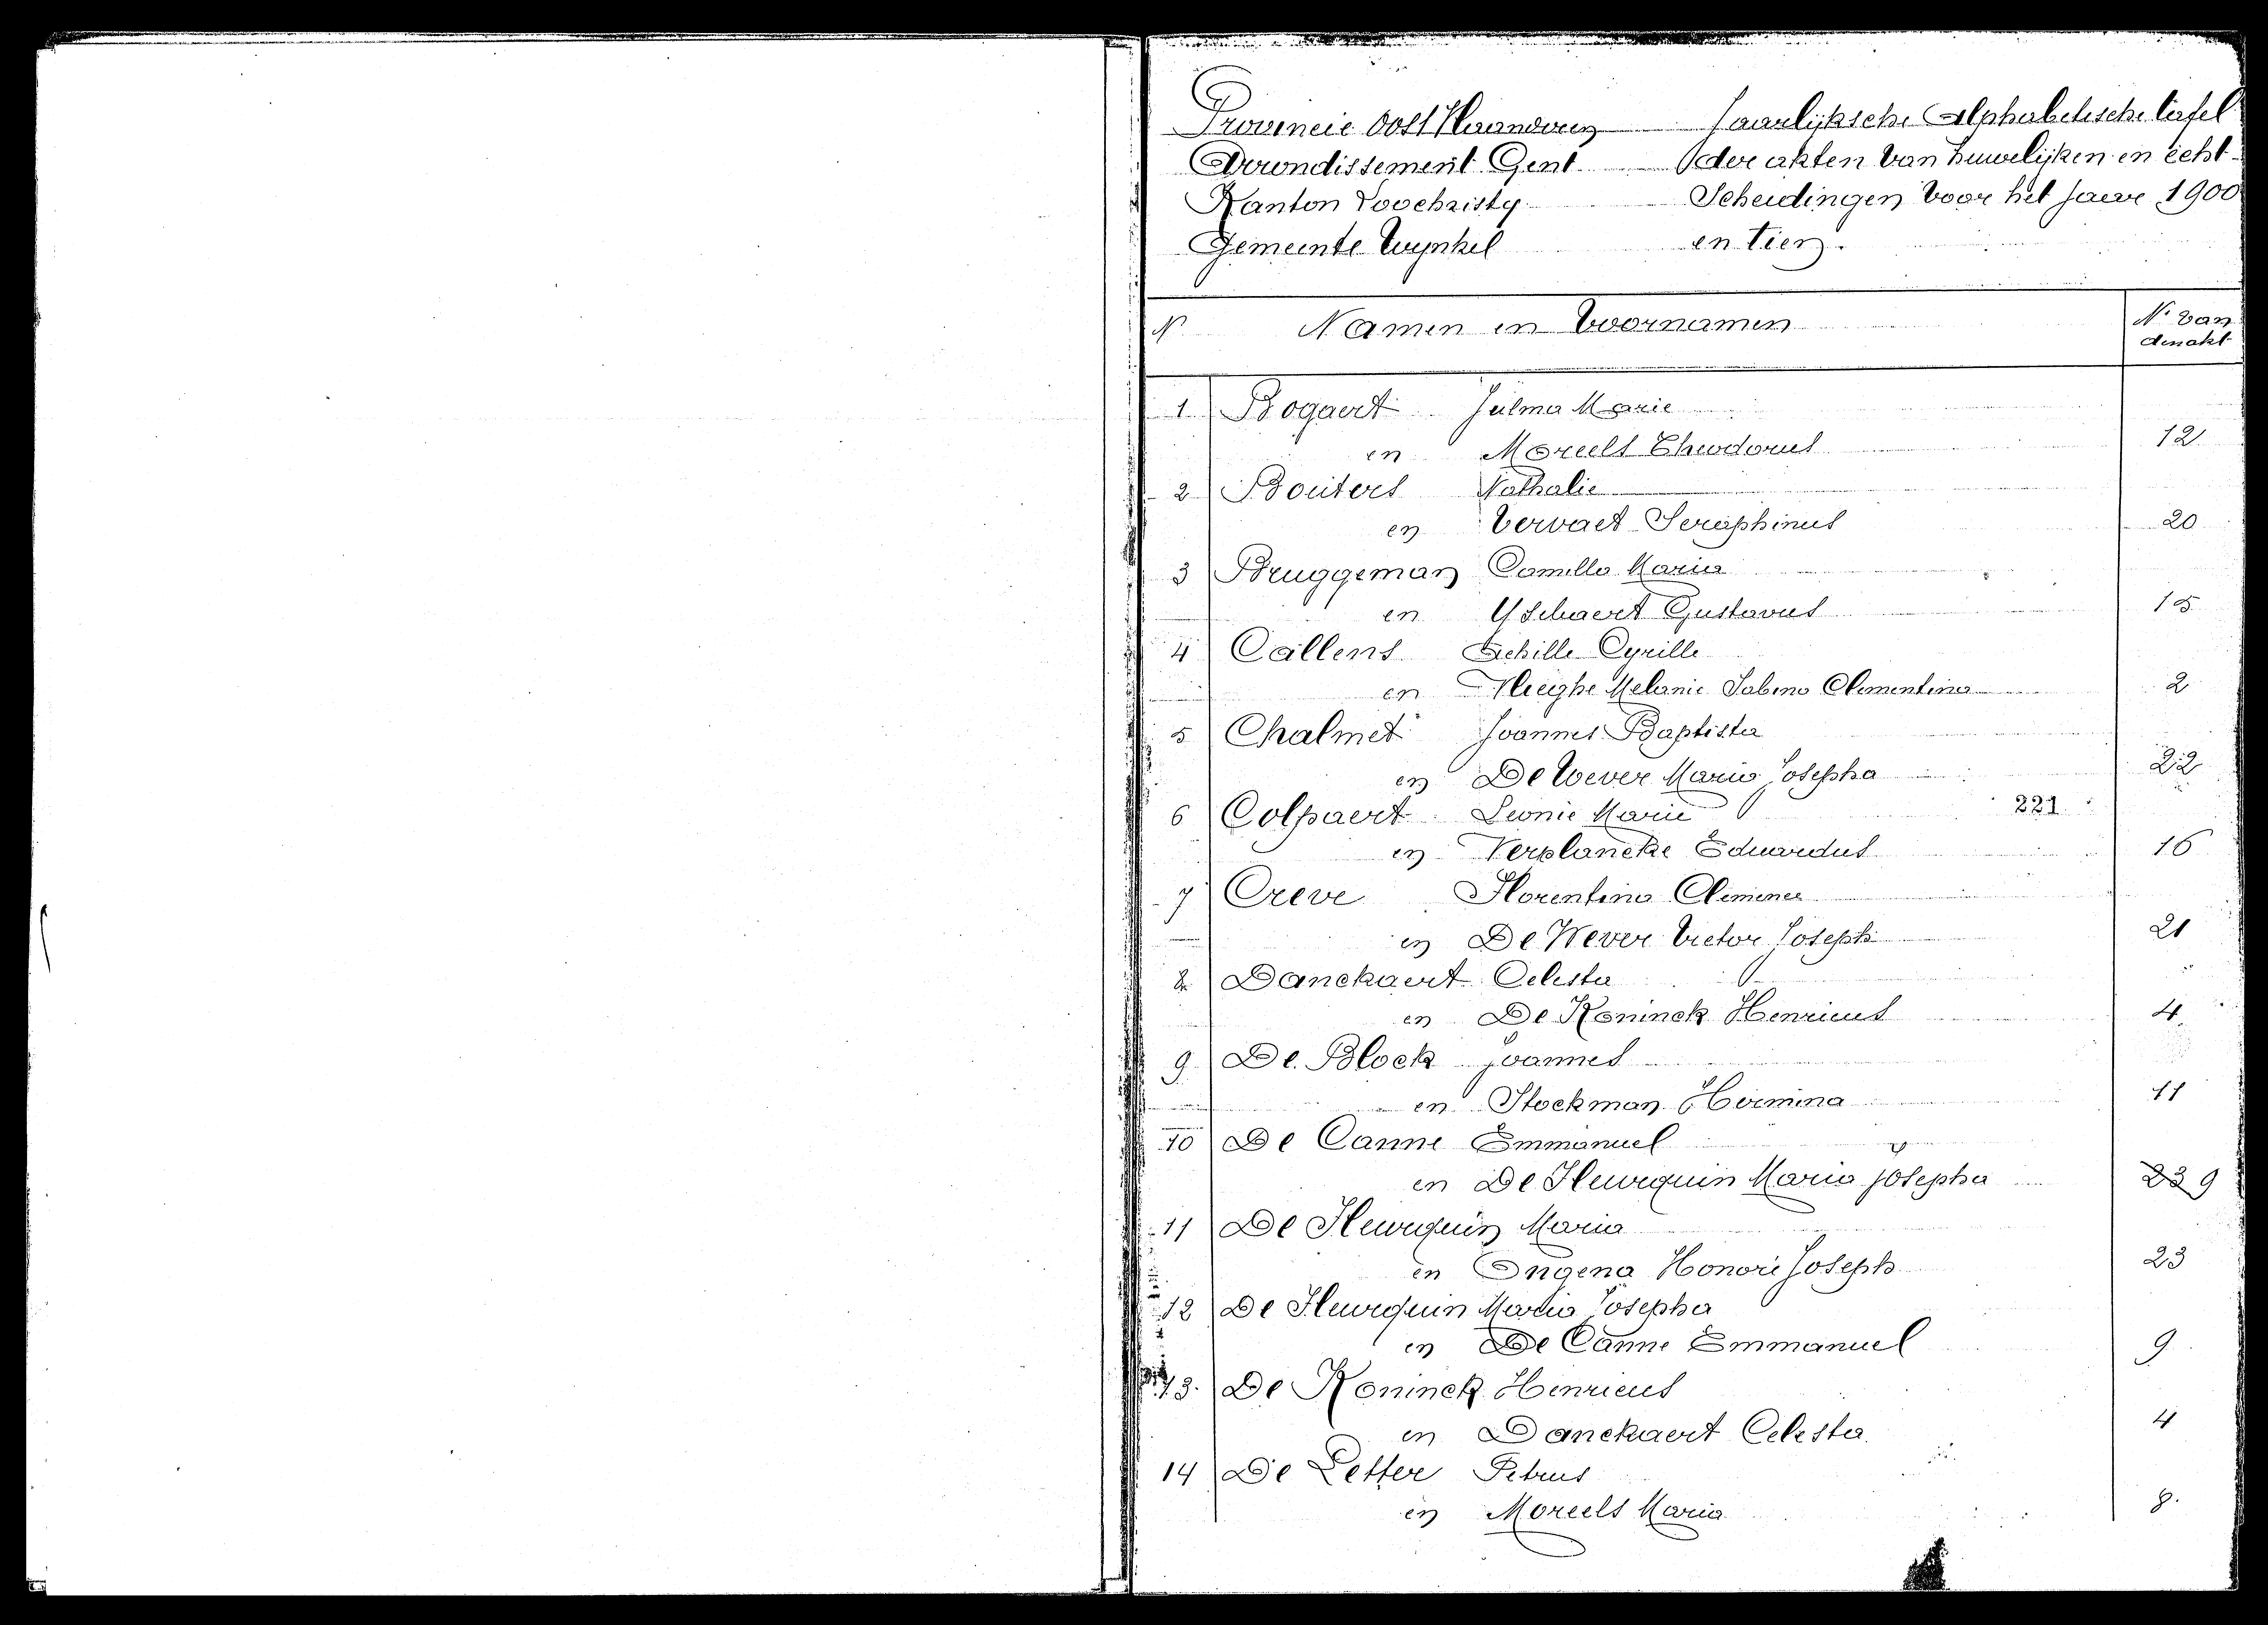 Provincie Oost Vlaanderen Jaarlijksche Alphabetische tafel
Arrondissement Gent der akten van huwelijken en echt-
Kanton Loochristy Scheidingen voor het jaar 1900
Gemeente Wynkel en tien.
N. Namen en Voornamen N. van den akt
1 Bogaert Julma Marie
en Moreels Theodorus 12
2 Bouters Nathalie
en Vervaet Seraphinus 20
3 Bruggeman Camilla Maria
en Yschaert Gustavus 15
4 Callens Achille Cyrille
en Melanie Sabina Clementina 2
5 Chalmet Joannes Baptista
en De Wever Maria Josepha 22
6 Colpaert Leonie Marie 221
en Verplancke Eduardus 16
7 Creve Florentina Clemence
en De Wever Victor Joseph 21
8 Danckaert Celesta
en De Koninck Henricus 4
9 De Block Joannes
en Stockman Hermina 11
10 De Canne Emmanuel
en De Fleurquin Maria Josepha 23 9
11 De Fleurquin Maria
en Ongena Honoré Joseph 23
12 De Fleurquin Maria Josepha
en De Canne Emmanuel 9
13. De Koninck Henricus
en Danckaert Celesta 4
14 De Letter Petrus
en Moreels Maria 8.